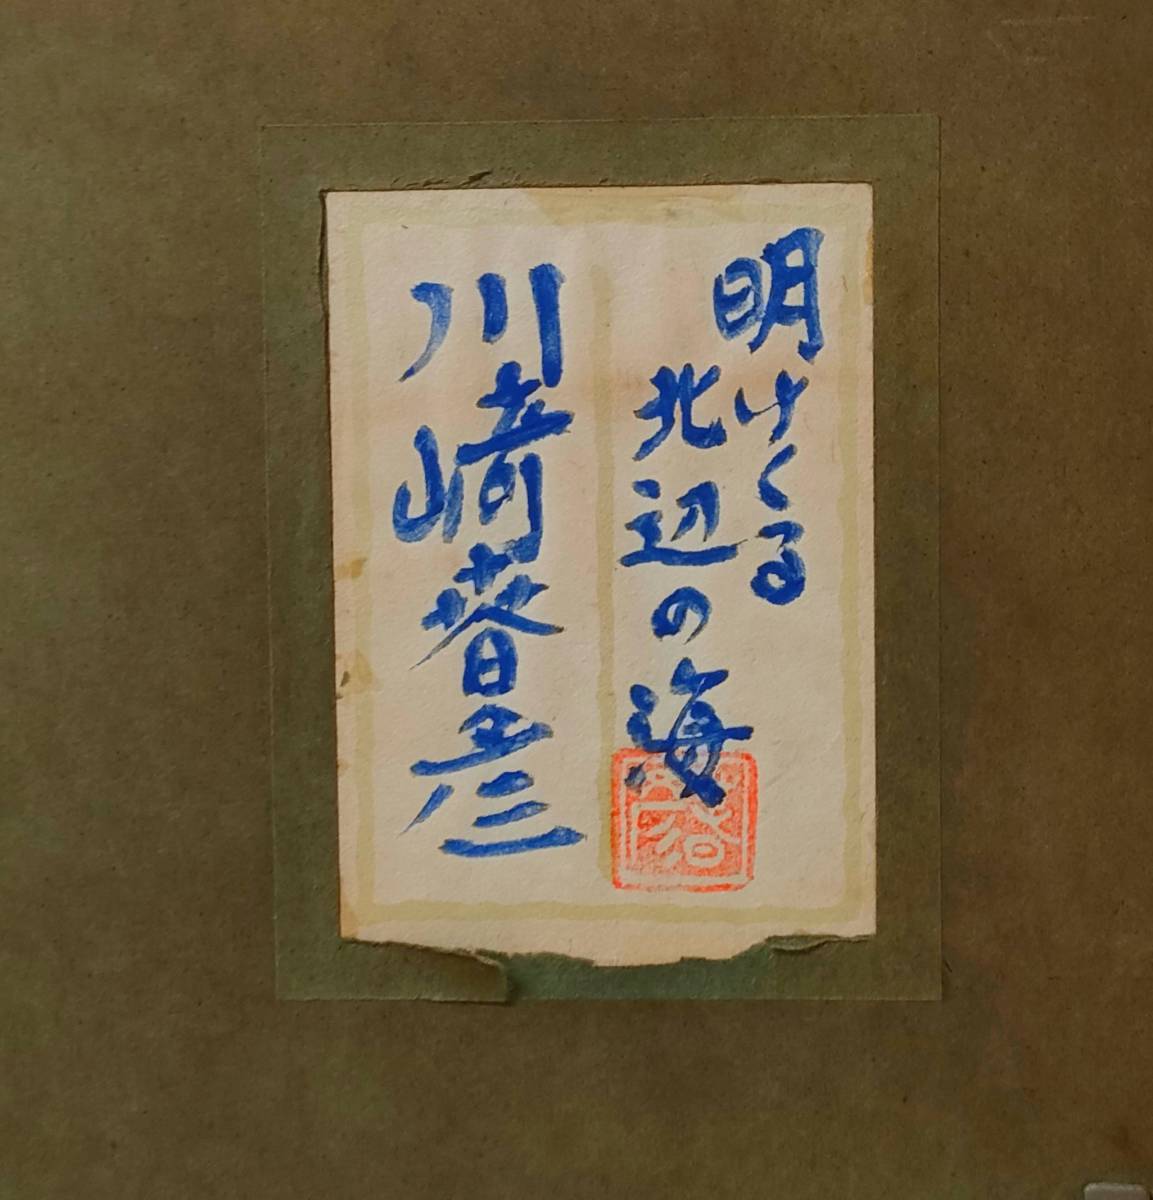 明けくる
北辺の海
川崎春彦